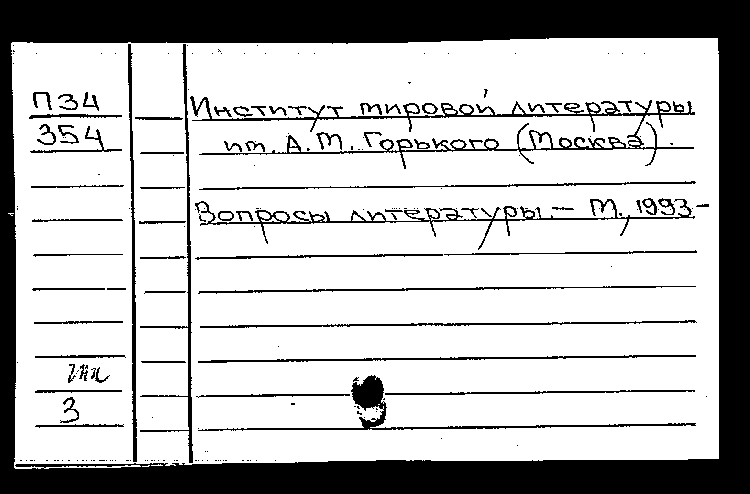 П34
354
Институт мировой литературы
им. А.М. Горького (Москва).
Вопросы литературы. — М., 1993 -
3